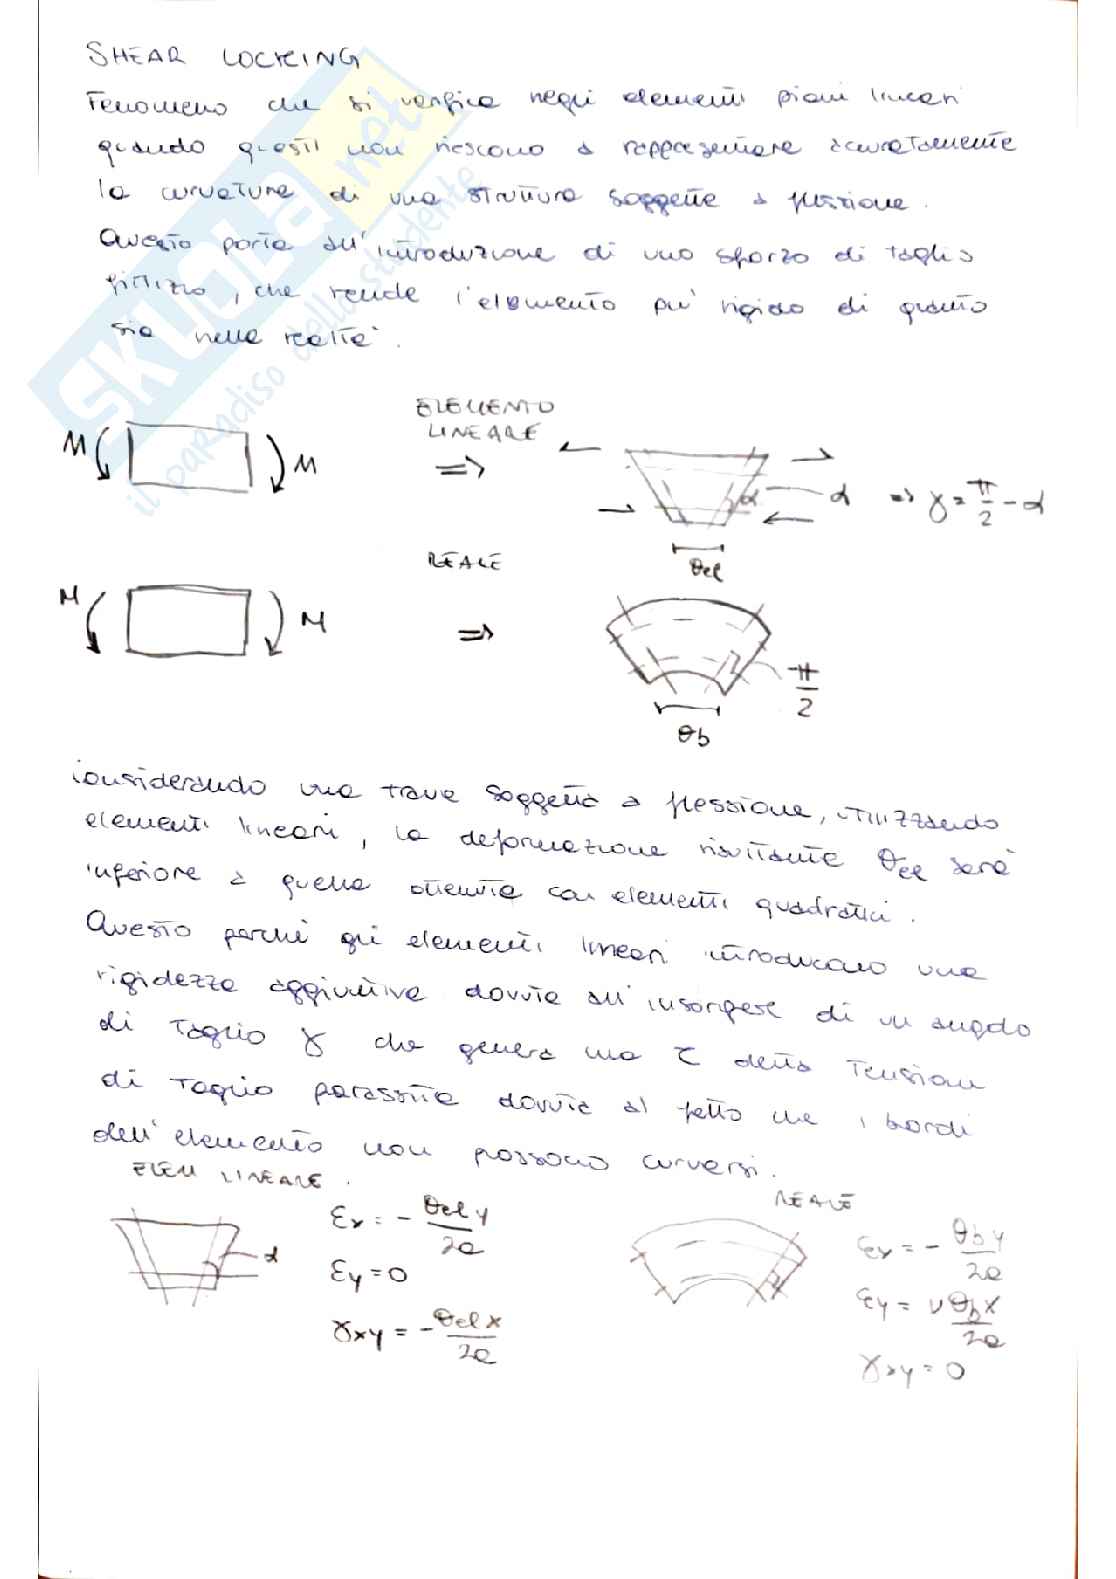 SHEAR LOCKING
Fenomeno che si verifica negli elementi piani lineari
quando questi non riescono a rappresentare accuratamente
la curvatura di una struttura soggetta a flessione.
Questo porta all'introduzione di uno sforzo di taglio
fittizio, che rende l'elemento più rigido di quanto
sia nella realtà.
ELEMENTO
LINEARE
M M ⇒ α α ⇒ γ = π/2 - α
θel
REALE
M M ⇒ π/2
θb
considerando una trave soggetta a flessione, utilizzando
elementi lineari, la deformazione risultante θel sarà
inferiore a quella ottenuta con elementi quadratici.
Questo perché gli elementi lineari introducono una
rigidezza aggiuntiva dovuta all'insorgere di un angolo
di taglio γ che genera una τ detta tensione
di taglio parassita dovuta al fatto che i bordi
dell'elemento non possono curvarsi.
ELEM LINEARE.
α
εx = - θel y / 2a
εy = 0
γxy = - θel x / 2a
REALE
εx = - θb y / 2a
εy = ν θb x / 2a
γxy = 0
SKUOLA.net
il paradiso dello studente